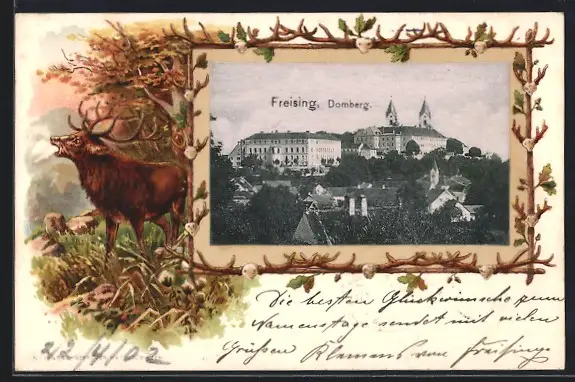 Freising, Domberg.
Die besten Glückwünsche zum
Namenstage sendet mit vielen
Grüßen Klemens von Freising
22/11/02